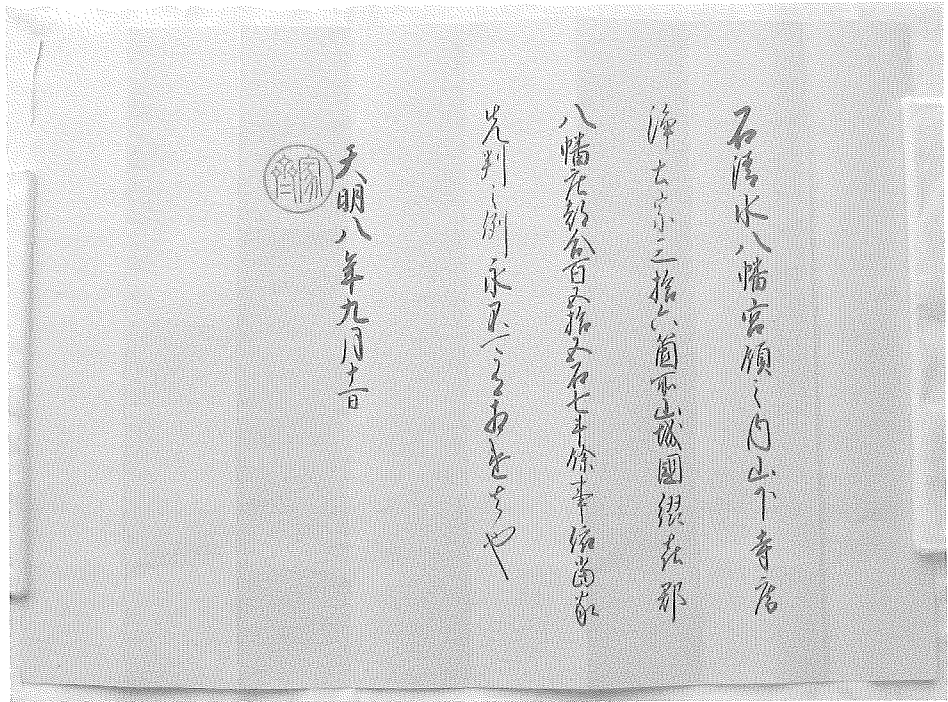 石清水八幡宮領之内山下寺庵
浄土宗三拾六箇所山城國綴喜郡
八幡庄都合百五拾五石七斗餘事依當家
先判之例永不可有相違者也
天明八年九月十一日
家齊